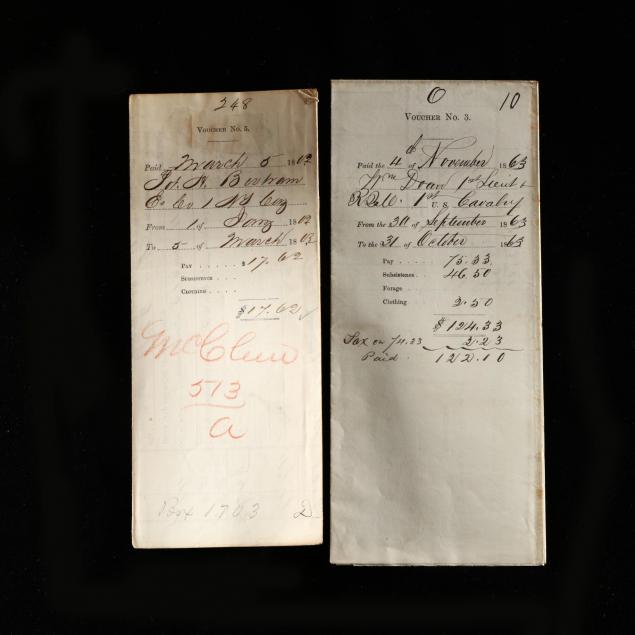 248
VOUCHER No. 5.
Paid March 5 1863
Bertram
Co 1 NY Cav
From 1 of Jany 1863
To 5 of March 1863
PAY . . . . . $17.62
SUBSISTENCE . . .
CLOTHING . . . .
$17.62
McClure
573
a
Box 1703 D
0 10
VOUCHER No. 3.
Paid the 4th of November 1863
Wm Dean 1st Lieut &
R.Q.M. 1st U. S. Cavalry
From the 30 of September 1863
To the 31 of October 1863
Pay . . . . 75.33
Subsistence . 46.50
Forage . .
Clothing 2.50
$124.33
Tax on 74.33 2.23
Paid. 122.10